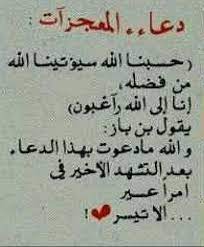 دعاء المعجزات :
(حسبنا الله سيؤتينا الله
من فضله،
إنا إلى الله راغبون)
يقول بن باز:
والله مادعوت بهذا الدعاء
بعد التشهد الأخير في
امرأ عسير
...الا تيسر ❤!